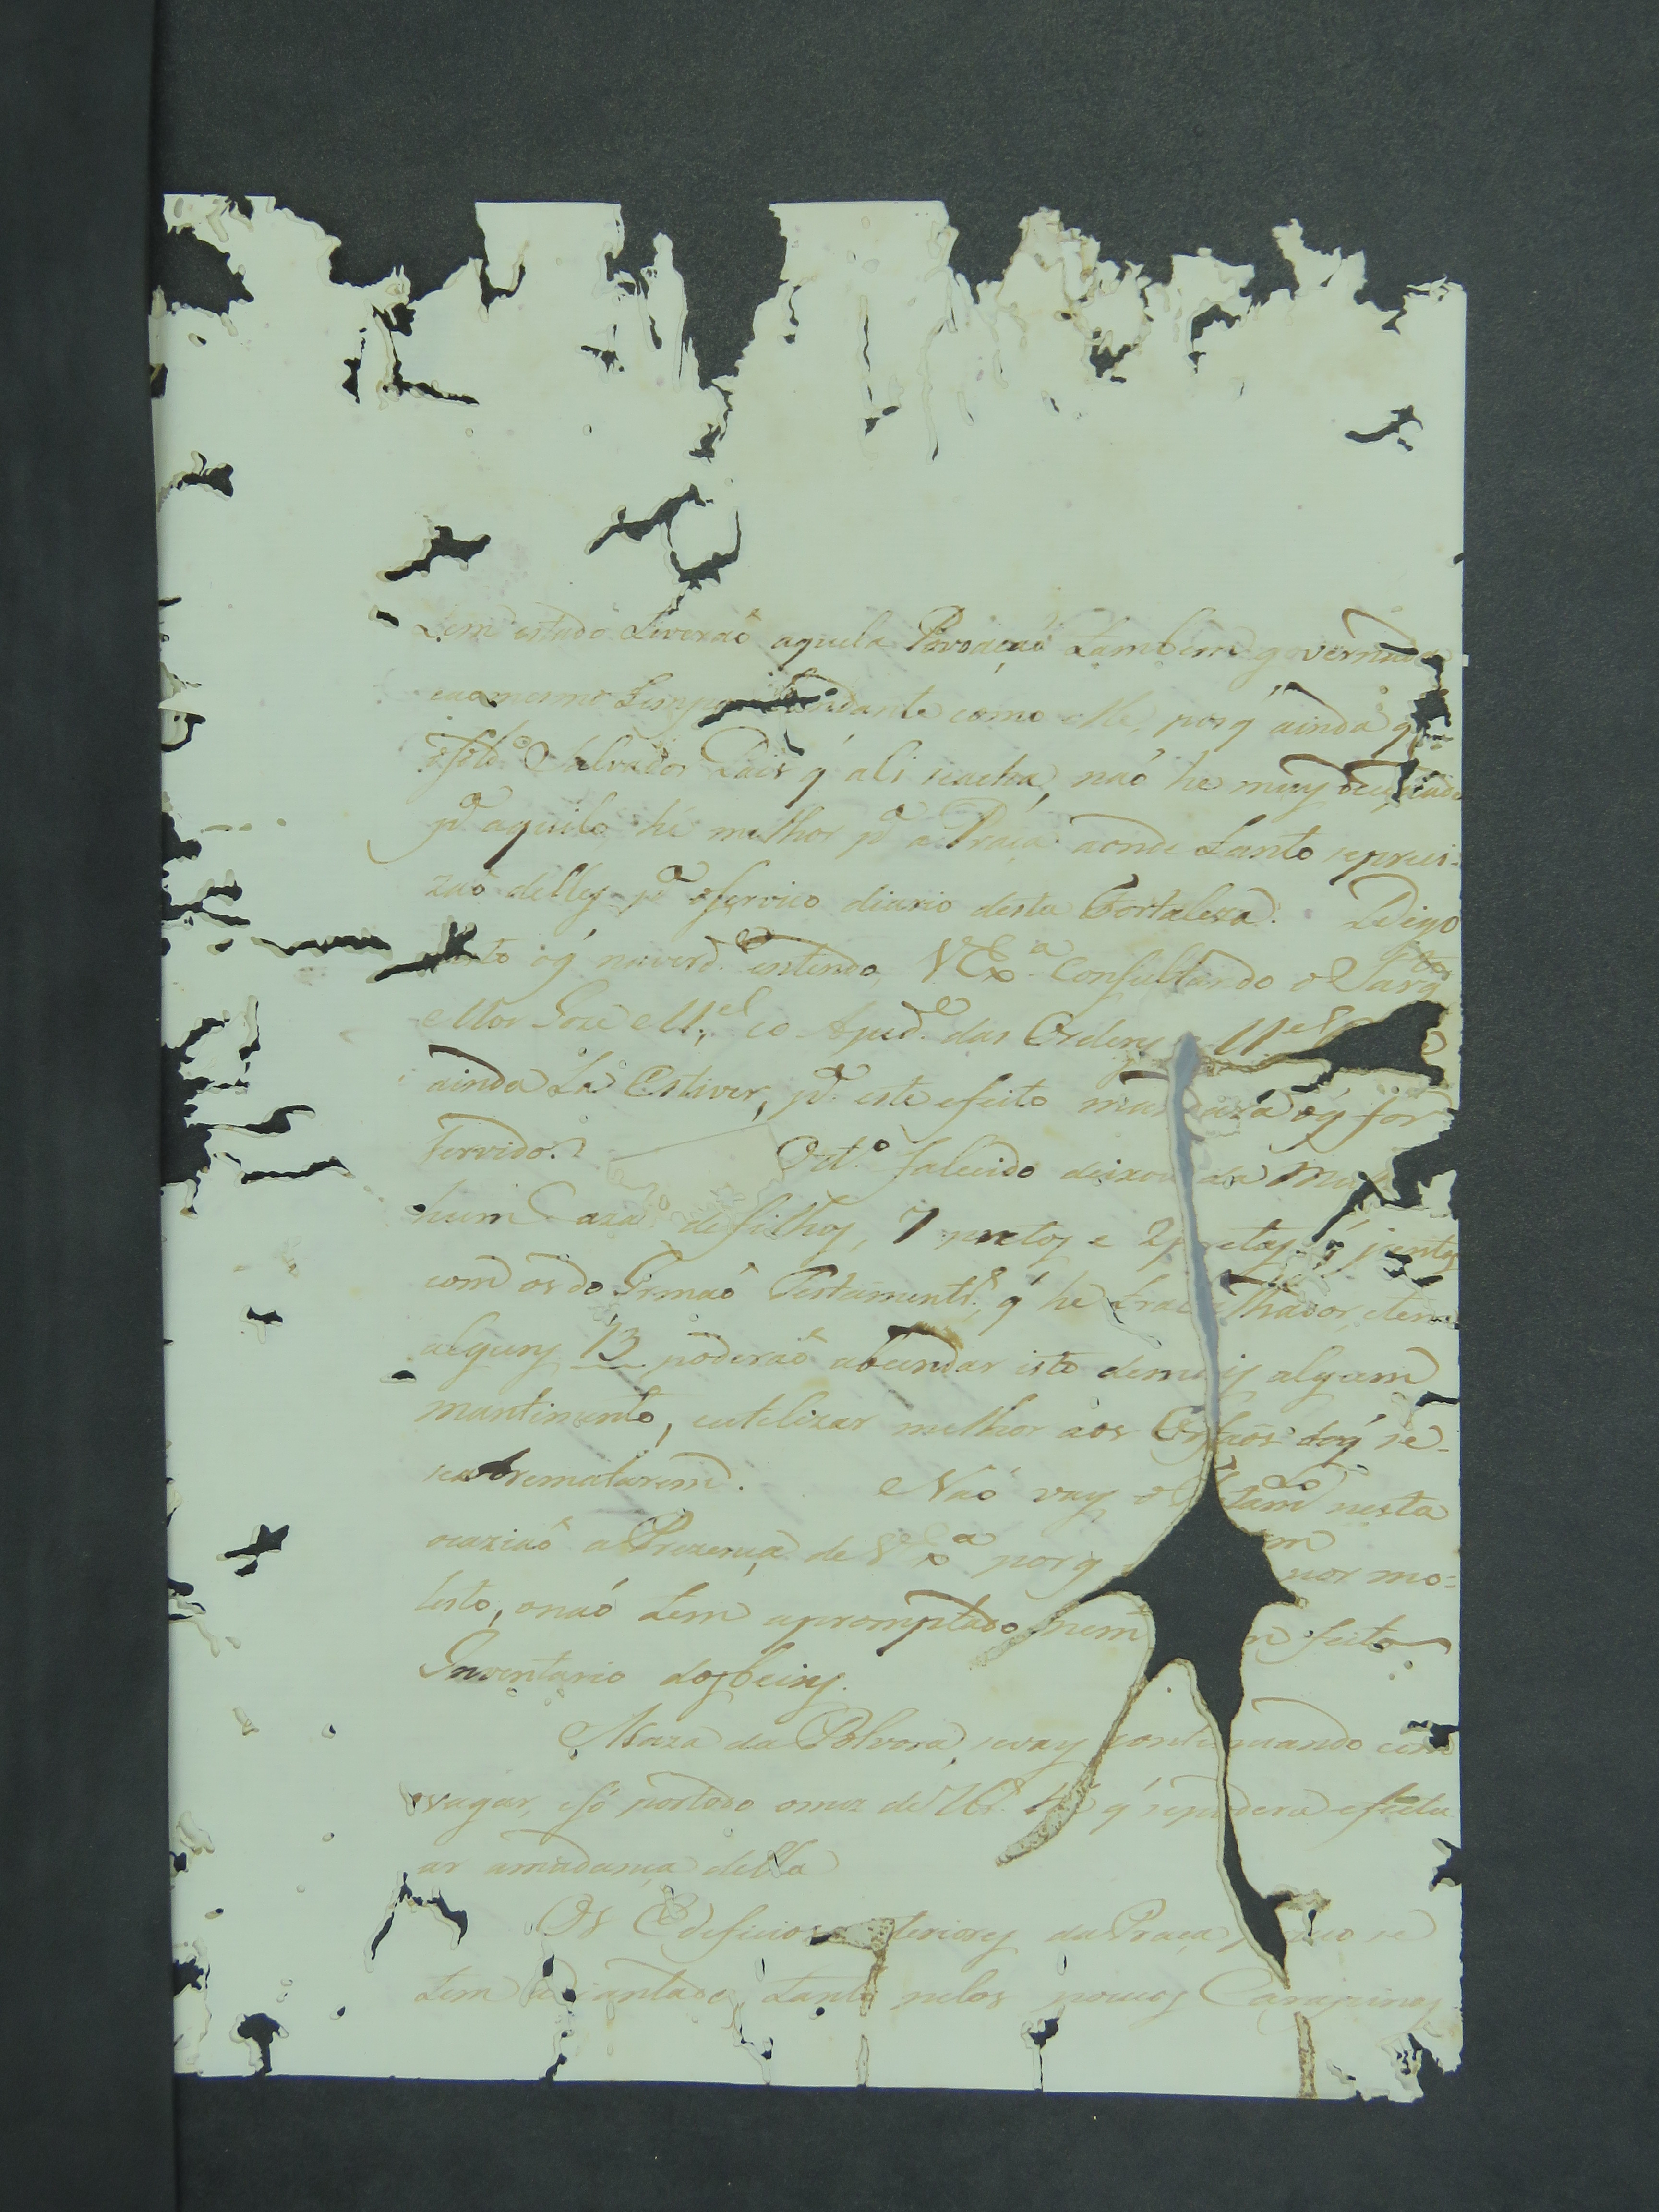 tem estado tiveraõ aquela Povoaçaõ tambem governada
eao mesmo tempo como elle, porq́ ainda q́
o sold.º Salvador Pais q́ ali seacha, naõ he muy
pª aquilo, hé melhor pª a Praça aonde tanto sepreci-
zaõ delles pª oserviço diario desta Fortaleza. Digo
isto oq́ naverdᵉ entendo, V Exª Consultando o Sarg.tos
Mor Joze M.el eo Ajudᵉ das Ordens M.el
ainda La Estiver, pª este efeito mandará oq́ for
servido. O d.º falecido deixou da
hum Cazal de filhos, 7 pretos e 2 pretas, q́ juntos
com os do Irmaõ Testamentr.º, q́ he trabalhador, etem
alguns 13 poderaõ abundar isto demais algum
mantimento, eutelizar melhor aos Orfaõs doq́ se-
rematarem. Naõ vay o Testam.to nesta
ocaziaõ a Prezença de V Exª porq mo-
lesto, onaõ tem apromptado, nem feito
Inventario dos beins.
A Caza da Polvora, sevay continuando com
vagar, esó portodo omez de 7br.º hé q́ sepodera efectu
ar amadança della
Os Edeficios interiores da Praça, pouco se
tem adiantado, tanto pelos poucos Carapinas